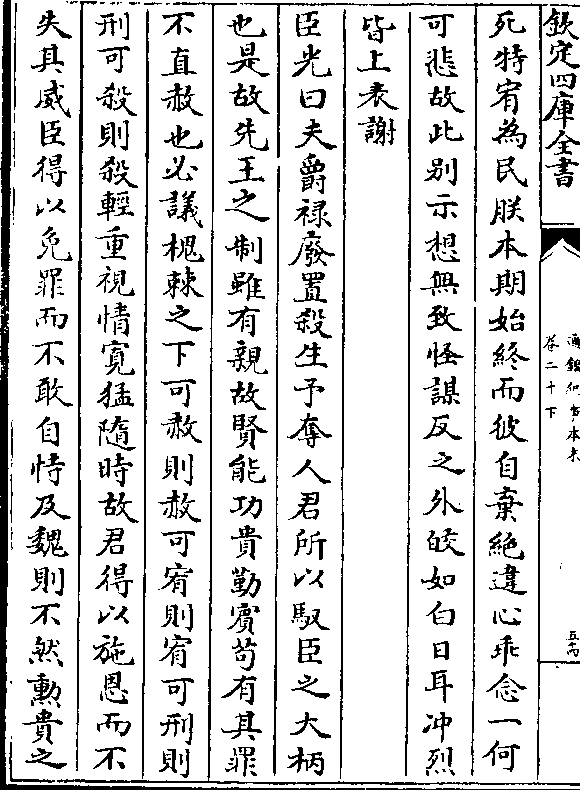 欽定四庫全書
通鑑紀事本末
卷二十下
死特宥為民朕本期始終而彼自棄絶違心乖念一何
可悲故此别示想無致怪謀反之外皎如白日耳冲烈
皆上表謝
臣光曰夫爵禄廢置殺生予奪人君所以馭臣之大柄
也是故先王之制雖有親故賢能功貴勤賓苟有其罪
不直赦也必議槐棘之下可赦則赦可宥則宥可刑則
刑可殺則殺輕重視情寛猛隨時故君得以施恩而不
失其威臣得以免罪而不敢自恃及魏則不然勲貴之